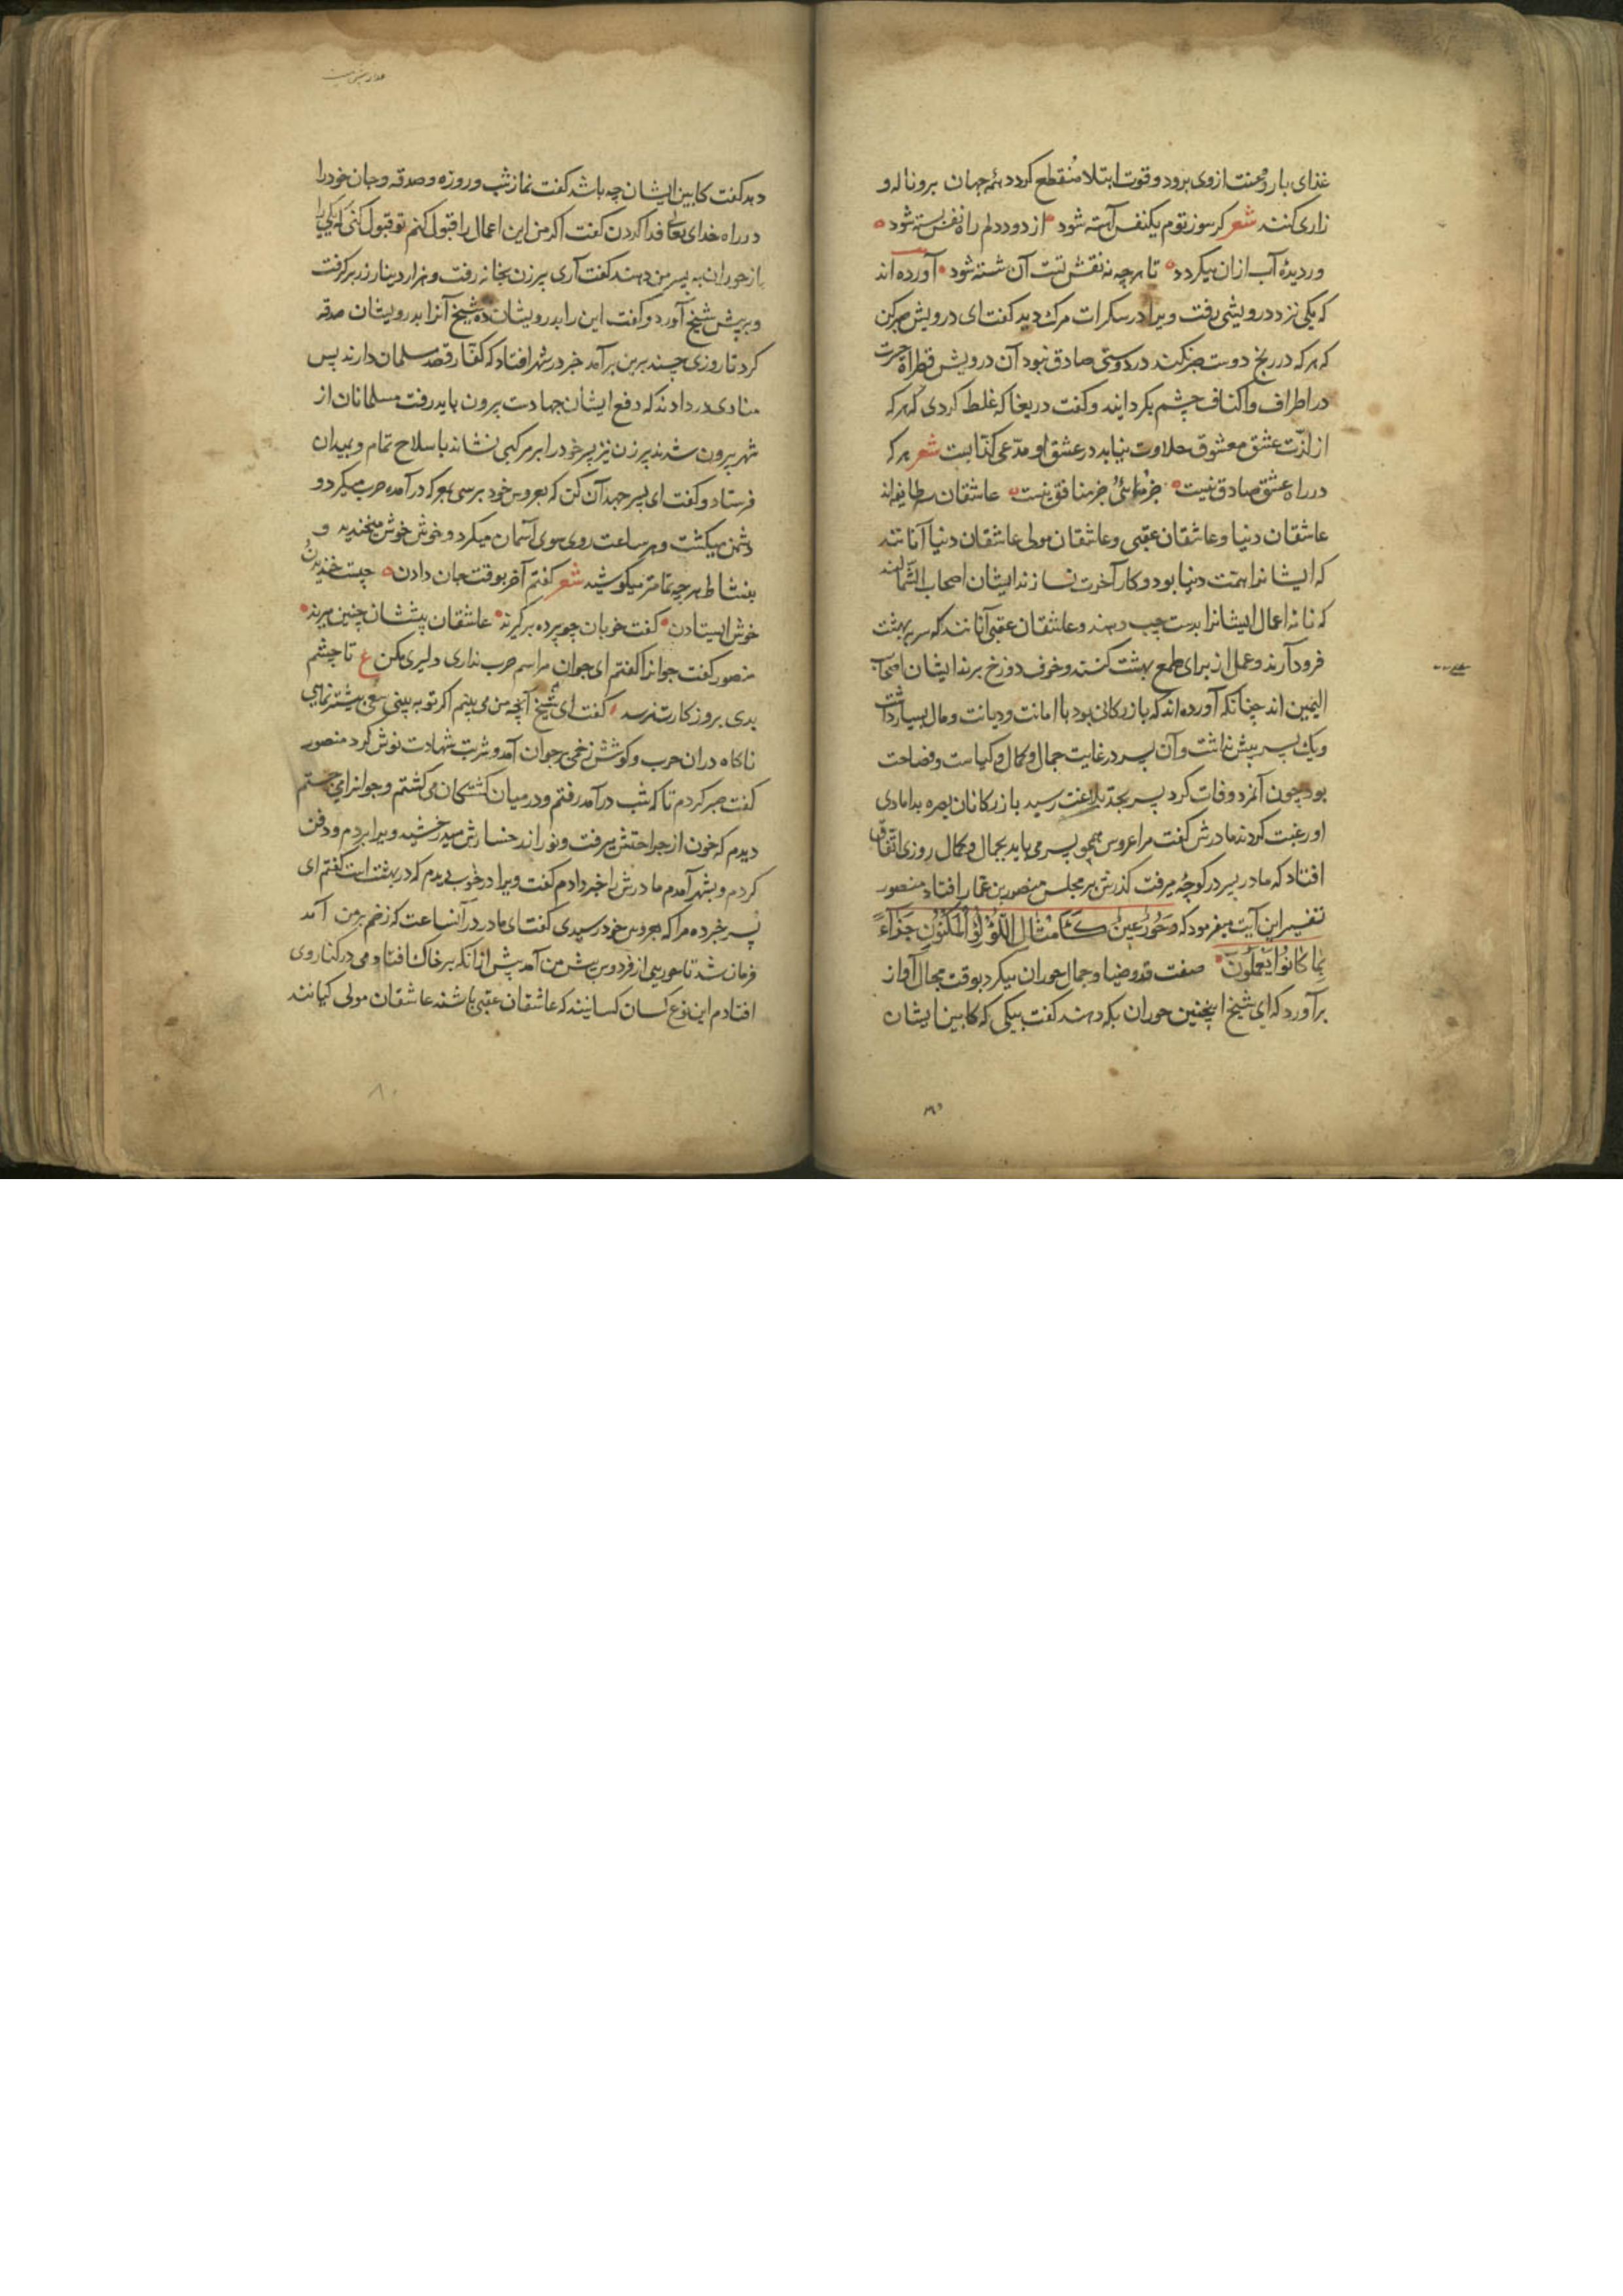 غذای بار و محنت از وی برود و قوت ابتلا منقطع کردد همه جهان برو ناله و
زاری کنند شعر کر سوز توم یکنفس آهسته شود از دود دلم راه نفس بسته شود
در دیده آب ازان میکردد تا هرچه نه نقش تست آن شسته شود آورده اند
که یکی نزد درویشی رفت ویرا در سکرات مرک دید کفت ای درویش صبر کن
که هر که در رنج دوست صبر نکند در دوستی صادق نبود آن درویش قطرات حسرت
در اطراف و اکناف چشم بکردانید و کفت دریغا که غلط کردی که هر که
از لذّت عشق معشوق حلاوت نیابد در عشق او مدّعی کذابست شعر هر که
در راه عشق صادق نیست جز مرائی و جز منافق نیست عاشقان سه طایفه اند
عاشقان دنیا و عاشقان عقبی و عاشقان مولی عاشقان دنیا آنانند
که ایشانرا همّت دنیا بود و کار آخرت نسازند ایشان اصحاب الشّمالند
که نامه اعمال ایشانرا بدست چپ دهند و عاشقان عقبی آنانند که سر ببهشت
فرود آرند و عمل از برای طمع بهشت کنند و خوف دوزخ برند ایشان اصحاب
الیمین اند چنانکه آورده اند که بازرکانی بود با امانت و دیانت و مال بسیار داشت
و یک پسر بیش نداشت و آن پسر در غایت جمال و کمال و کیاست و فصاحت
بود چون آنمرد وفات کرد پسر بحدّ بلاغت رسید بازرکانان بصره بدامادی
او رغبت کردند مادرش کفت مرا عروس همچو پسر می باید بجمال و کمال روزی اتّفاق
افتاد که مادر پسر در کوچه میرفت کذرش بر مجلس منصور بن عمار افتاد منصور
تفسیر این آیت میفرمود که وَحُورٌ عِینٌ کَأَمْثَالِ اللُّؤْلُؤِ الْمَکْنُونِ جَزَاءً
بِمَا کَانُوا یَعْمَلُونَ صفت قد و ضیا و جمال حوران میکرد بوقت مجال آواز
برآورد که ای شیخ اینچنین حوران بکه دهند کفت بیکی که کابین ایشان
دهد کفت کابین ایشان چه باشد کفت نماز شب و روزه و صدقه و جان خود را
در راه خدای تعالی فدا کردن کفت اکر من این اعمال را قبول کنم تو قبول کنی که یکی را
از حوران به پسر من دهند کفت آری پیرزن بخانه رفت و هزار دینار زر برکرفت
و بر پیش شیخ آورد و کفت این را بدرویشان ده شیخ آنرا بدرویشان صدقه
کرد تا روزی چند برین برآمد خبر در شهر افتاد که کفّار قصد مسلمان دارند پس
منادی در دادند که دفع ایشان جهادست بیرون باید رفت مسلمانان از
شهر بیرون شدند پیرزن نیز پسر خود را بر مرکبی نشاند با سلاح تمام و بمیدان
فرستاد و کفت ای پسر جهد آن کن که بعروس خود برسی پسر که در آمده حرب میکرد و
دشمن میکشت و هر ساعت روی سوی آسمان میکرد و خوش خوش میخندید و
بنشاط هر چه تمامتر میکوشید شعر کفتم آخر بوقت جان دادن چیست خندیدن و
خوش ایستادن کفت خوبان چو پرده برکیرند عاشقان پیششان چنین میرند
منصور کفت جوانرا کفتم ای جوان مراسم حرب نداری دلیری مکن ع تا چشم
بدی بروز کارت نرسد کفت ای شیخ آنچه من می بینم اکر تو به بینی سعی بیشتر نمایی
ناکاه دران حرب و کوشش زخمی بر جوان آمد و شربت شهادت نوش کرد منصور
کفت صبر کردم تا که شب درآمد رفتم و در میان کشتکان می کشتم و جوانرا می جستم
دیدم که خون از جراحتش میرفت و نور از رخسارش میدرخشید ویرا ببردم و دفن
کردم و بشهر آمدم مادرش را خبر دادم کفت ویرا در خواب دیدم که در بهشت است کفتم ای
پسر خبر ده مرا که بعروس خود رسیدی کفت ای مادر در آنساعت که زخم بر من آمد
فرمان شد تا حوریی از فردوس پیش من آمد پیش ازانکه بر خاک افتادمی در کنار وی
افتادم این نوع کسان کسانیند که عاشقان عقبی باشند عاشقان مولی کیانند
۸۰